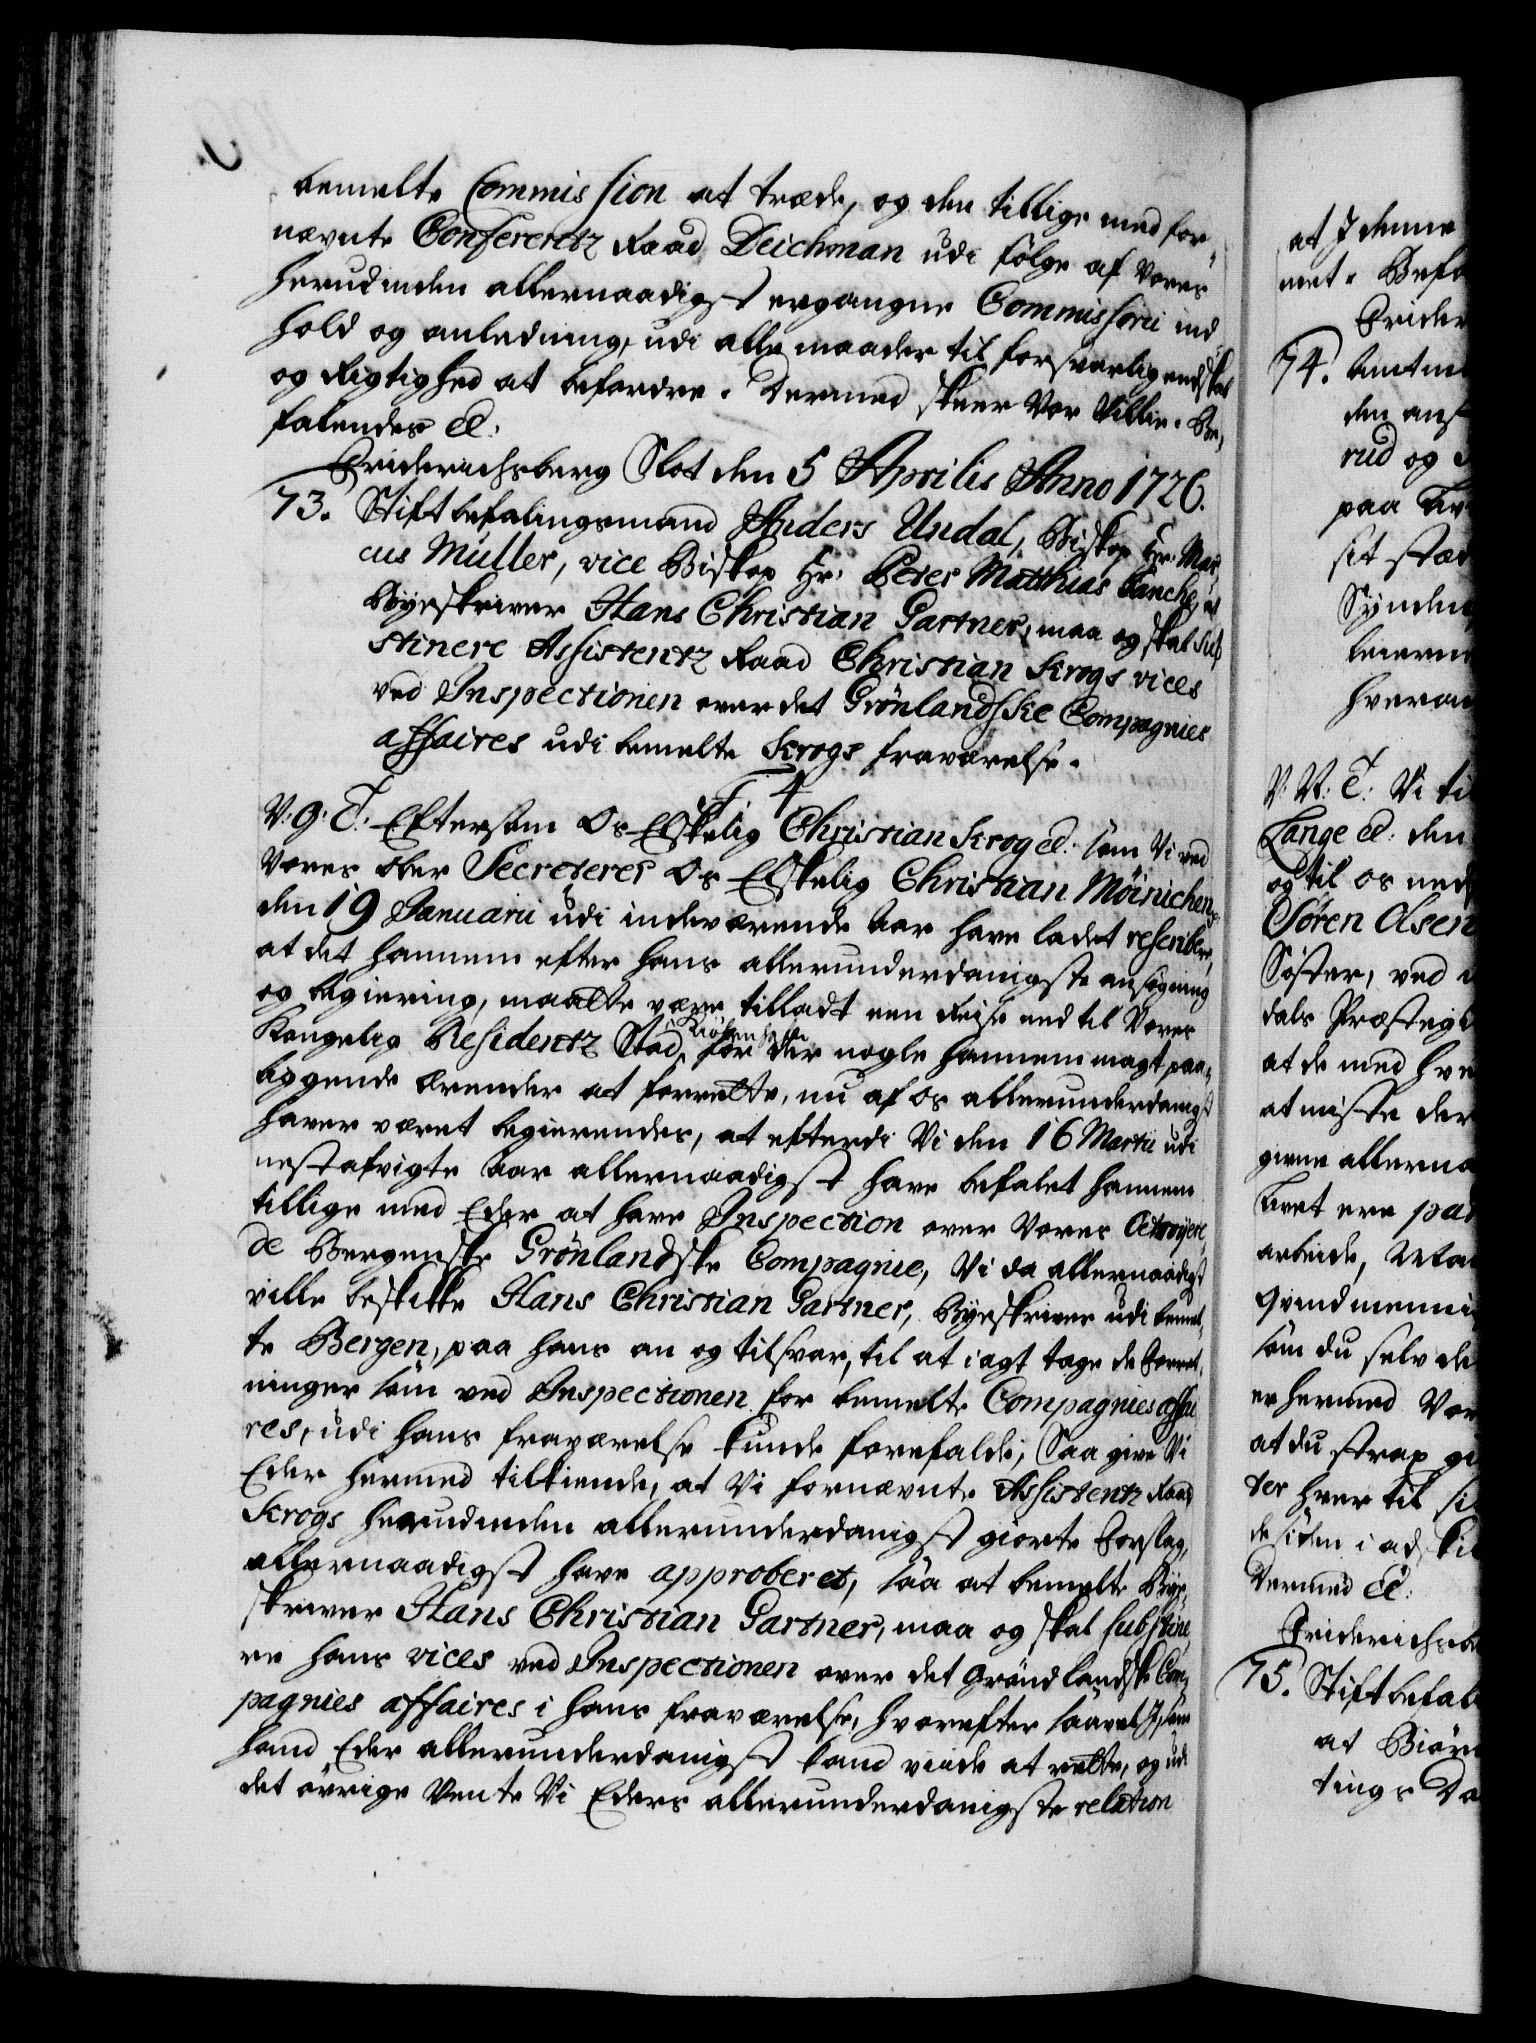 bemelte Commission at træde, og den tillige med for„
nævnte Conferentz Raad Deichman udi følge af Vores
herudinden allernaadigst ergangne Commissorii ind„
hold og anledning, udi alle maader til forsvarlig endskab
og Rigtighed at befordre. Dermed skeer Vor Villie. Be„
falendes &:
Friderichsberg Slot den 5 Aprilis Anno 1726.
73. Stiftbefalingsmand Anders Undal, Biskop Hr: Mar„
cus Müller, vice Biskop Hr: Peter Matthias Tanche, at
Byeskriver Hans Christian Gartner, maa og skal sub„
stinere Assistentz Raad Christian Krogs vices
ved Inspectionen over det Grönlandske Compagnies
affaires udi bemelte Krogs fraværelse.
F 4
V: G: T: Eftersom Os Elskelig Christian Krog &: som Vi ved
Vores Ober Secreterer Os Elskelig Christian Möinichen,
den 19 Januarii udi indeværende Aar have ladet rescribere,
at det hannem efter hans allerunderdanigste ansøgning
og begiering, maatte være tilladt een Reise ned til Vores
Kongelig Residentz Stad Kiøbenhafn for der nogle hannem magt paa„
liggende Ærender at forrette, nu af os allerunderdanigst
haver været begierendes, at efterdi Vi den 16 Martii udi
nestafvigte Aar allernaadigst have befalet hannem
tillige med Eder at have Inspection over Vores Octroyere„
de Bergenske Grönlandske Compagnie, Vi da allernaadigst
ville beskikke Hans Christian Gartner, Byeskriver udi bemel„
te Bergen, paa hans an og tilsvar, til at iagt tage de Forret„
ninger som ved Inspectionen for bemelte Compagnies affai
res, udi hans fraværelse kunde forefalde; Saa give Vi
Eder hermed tilkiende, at Vi fornævnte Assistentz Raad
Krogs herudinden allerunderdanigst giorte Forslag,
allernaadigst have approberet, saa at bemelte Bye„
skriver Hans Christian Gartner, maa og skal substine„
re hans vices ved Inspectionen over det Grönlandske Com„
pagnies affaires i hans fraværelse, hvorefter saavel I, som
hand Eder allerunderdanigst kand vide at rette, og udi
det øvrige Vente Vi Eders allerunderdanigste relation
at I denne
met. Befa
Frider
74. Amtma
den ans
rud og
paa
sit stæ
Synden
hveran
V: G: T: Vi til
Lange &: den
og til os ned
Sören Olsen
Søster, ved
dals Præstegi
at de med hve
at miste der
givne allerna
arbeide,
Qvindmenni
som du selv de
er hermed Vor
at du strax gi
ter hver til si
de siden i ad
Dermed &:
Friderichsb
75. Stiftbefal
at Biörn
tings